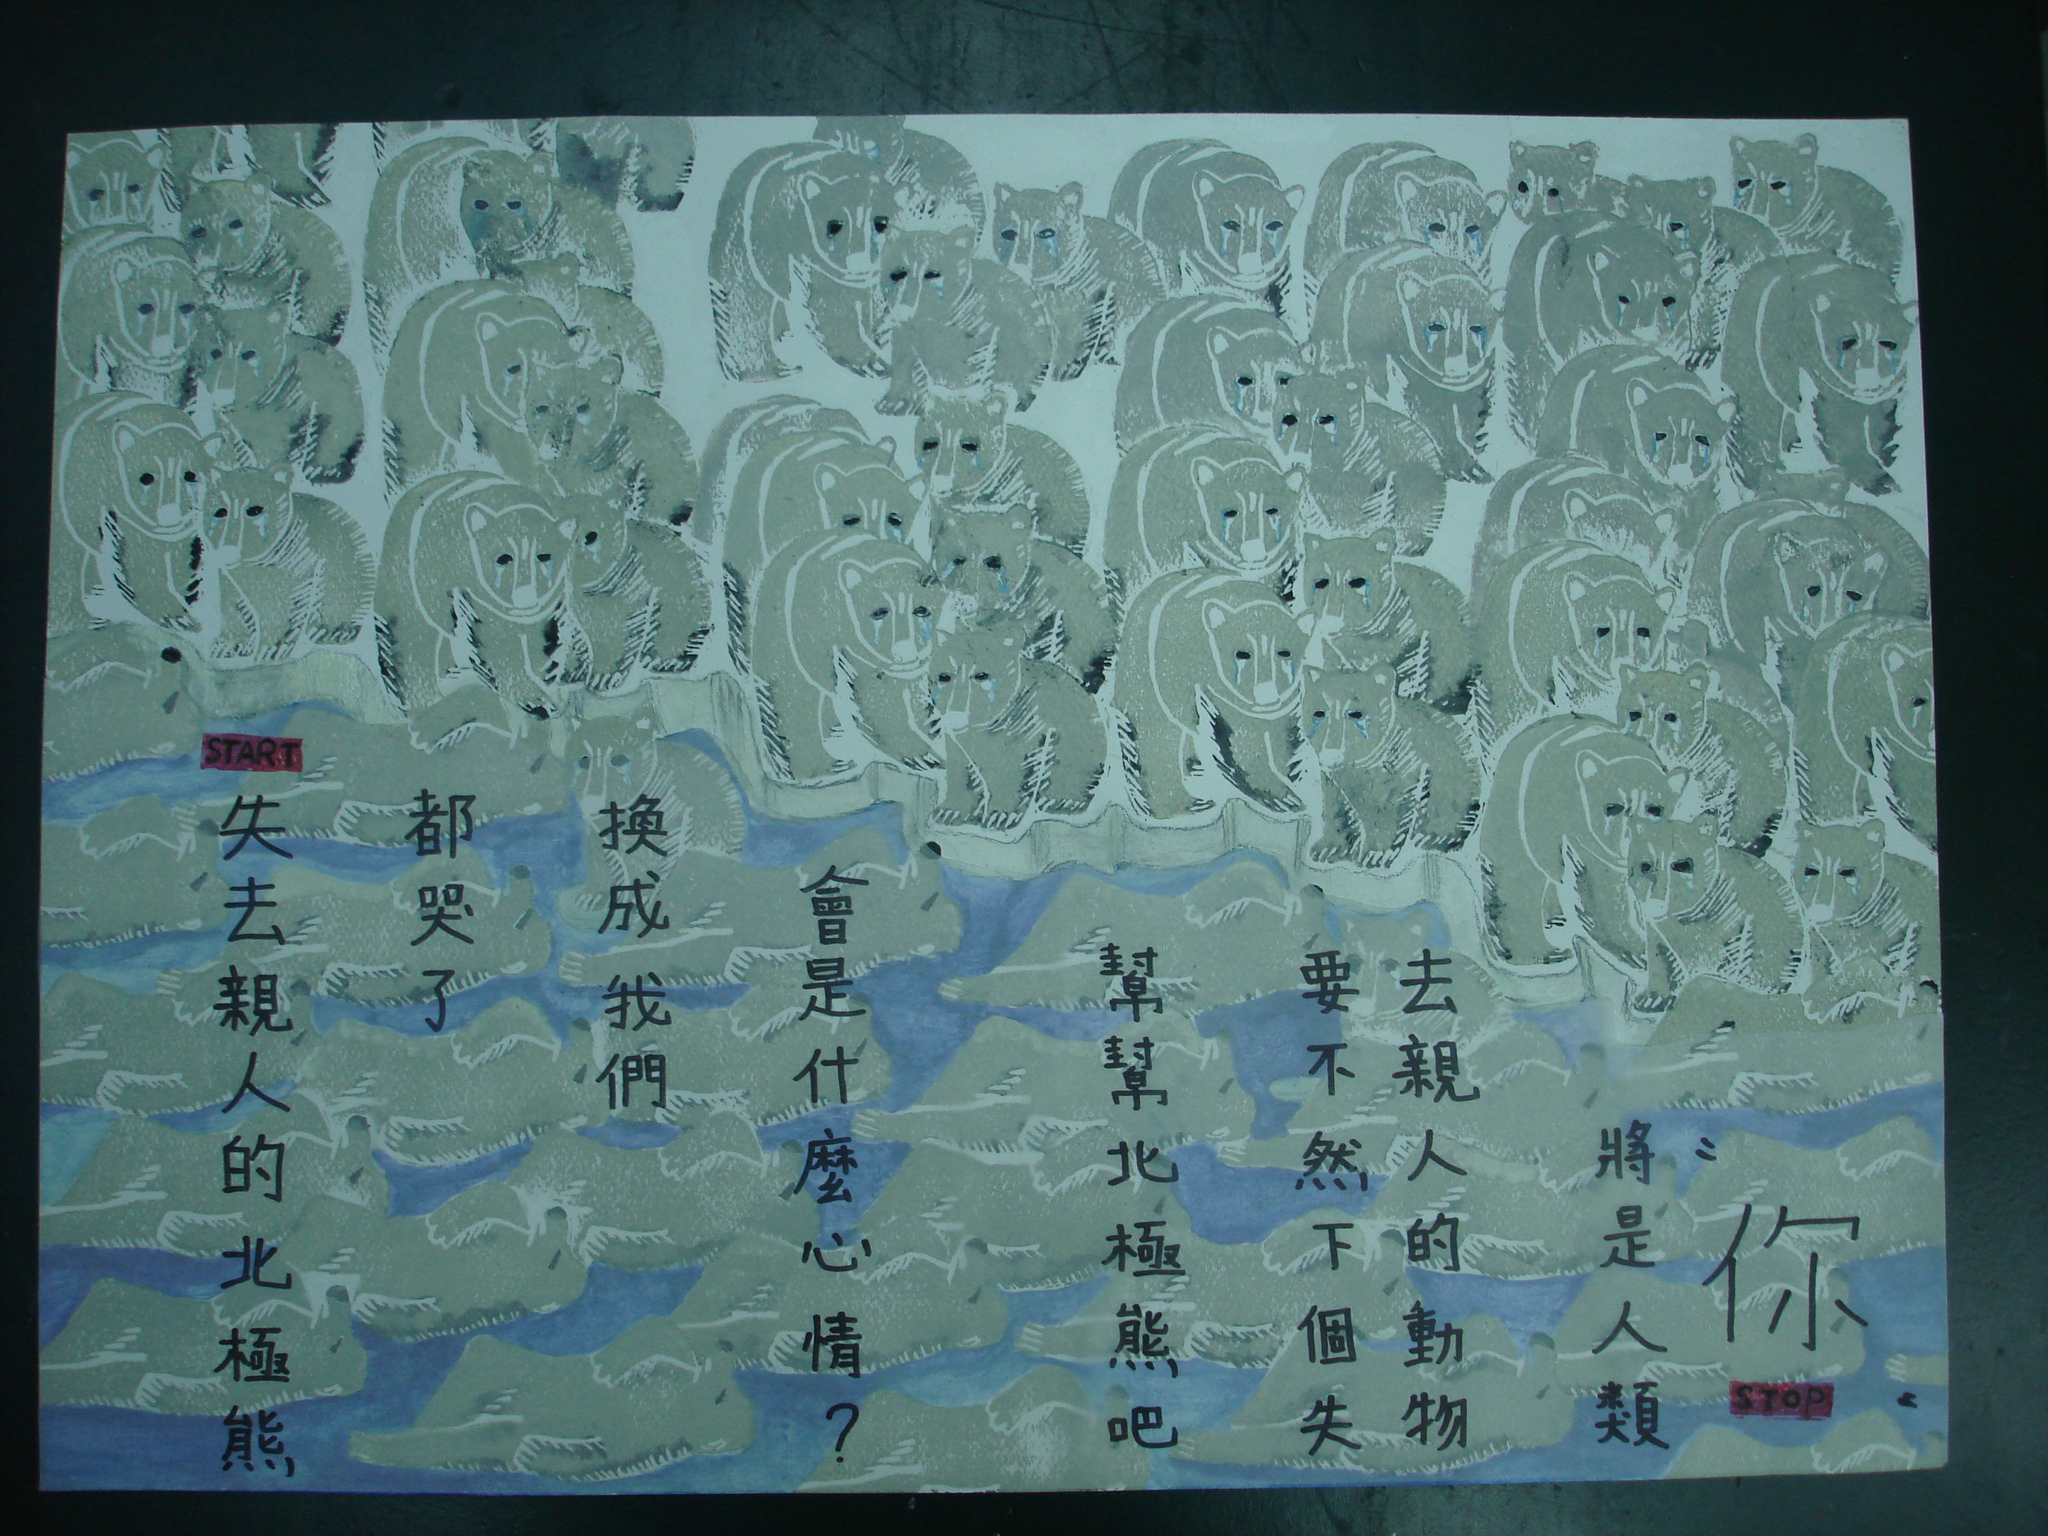 START
失去親人的北極熊
都哭了
換成我們
會是什麼心情？
幫幫北極熊吧
要不然下個失
去親人的動物
將是人類
你
STOP